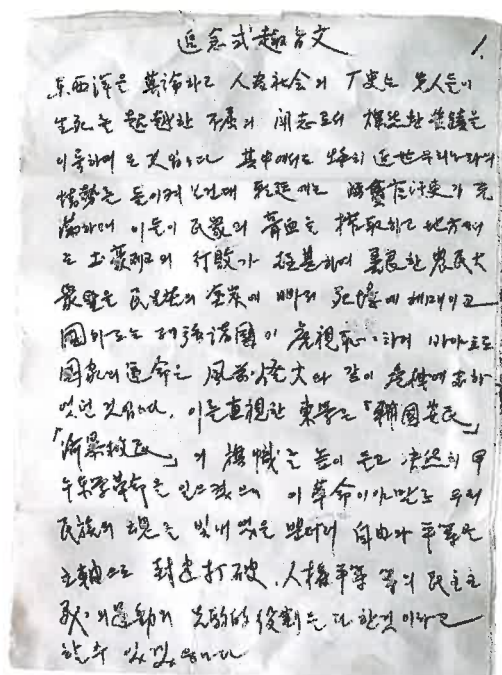 追念式趣旨文
1.
東西洋을 莫論하고 人類社会의 歷史는 先人들이
生死를 超越한 不屈의 闘志로서 燦然한 業績을
이룩하여 온 것입니다 其中에서도 特히 近世 우리나라의
情勢를 돌이켜 보건대 朝廷에는 貪官汚吏가 充
満하여 이들이 民衆의 膏血을 搾取하고 地方에서
는 土豪 의 行敗가 極甚하여 善良한 農民大
衆들은 民生苦의 塗炭에 빠져 에 헤매이고
國外로는 列強諸國이 虎視耽々하여 바야흐로
国家의 運命은 風前灯火와 같이 危機에 해
있던 것입니다. 이를 直視한 東学은 「輔國安民」
「除暴救民」의 旗幟를 높이 들고 决然히 甲
午東学革命을 일으켰으며 이 革命이야말로 우리
民族의 魂을 빛내었을 뿐더러 自由와 平等을
主軸으로 封建打破、人権平等 等의 民主主
義의 運動의 先駆的 役割을 다 한것 이라고
할 수 있겠습니다